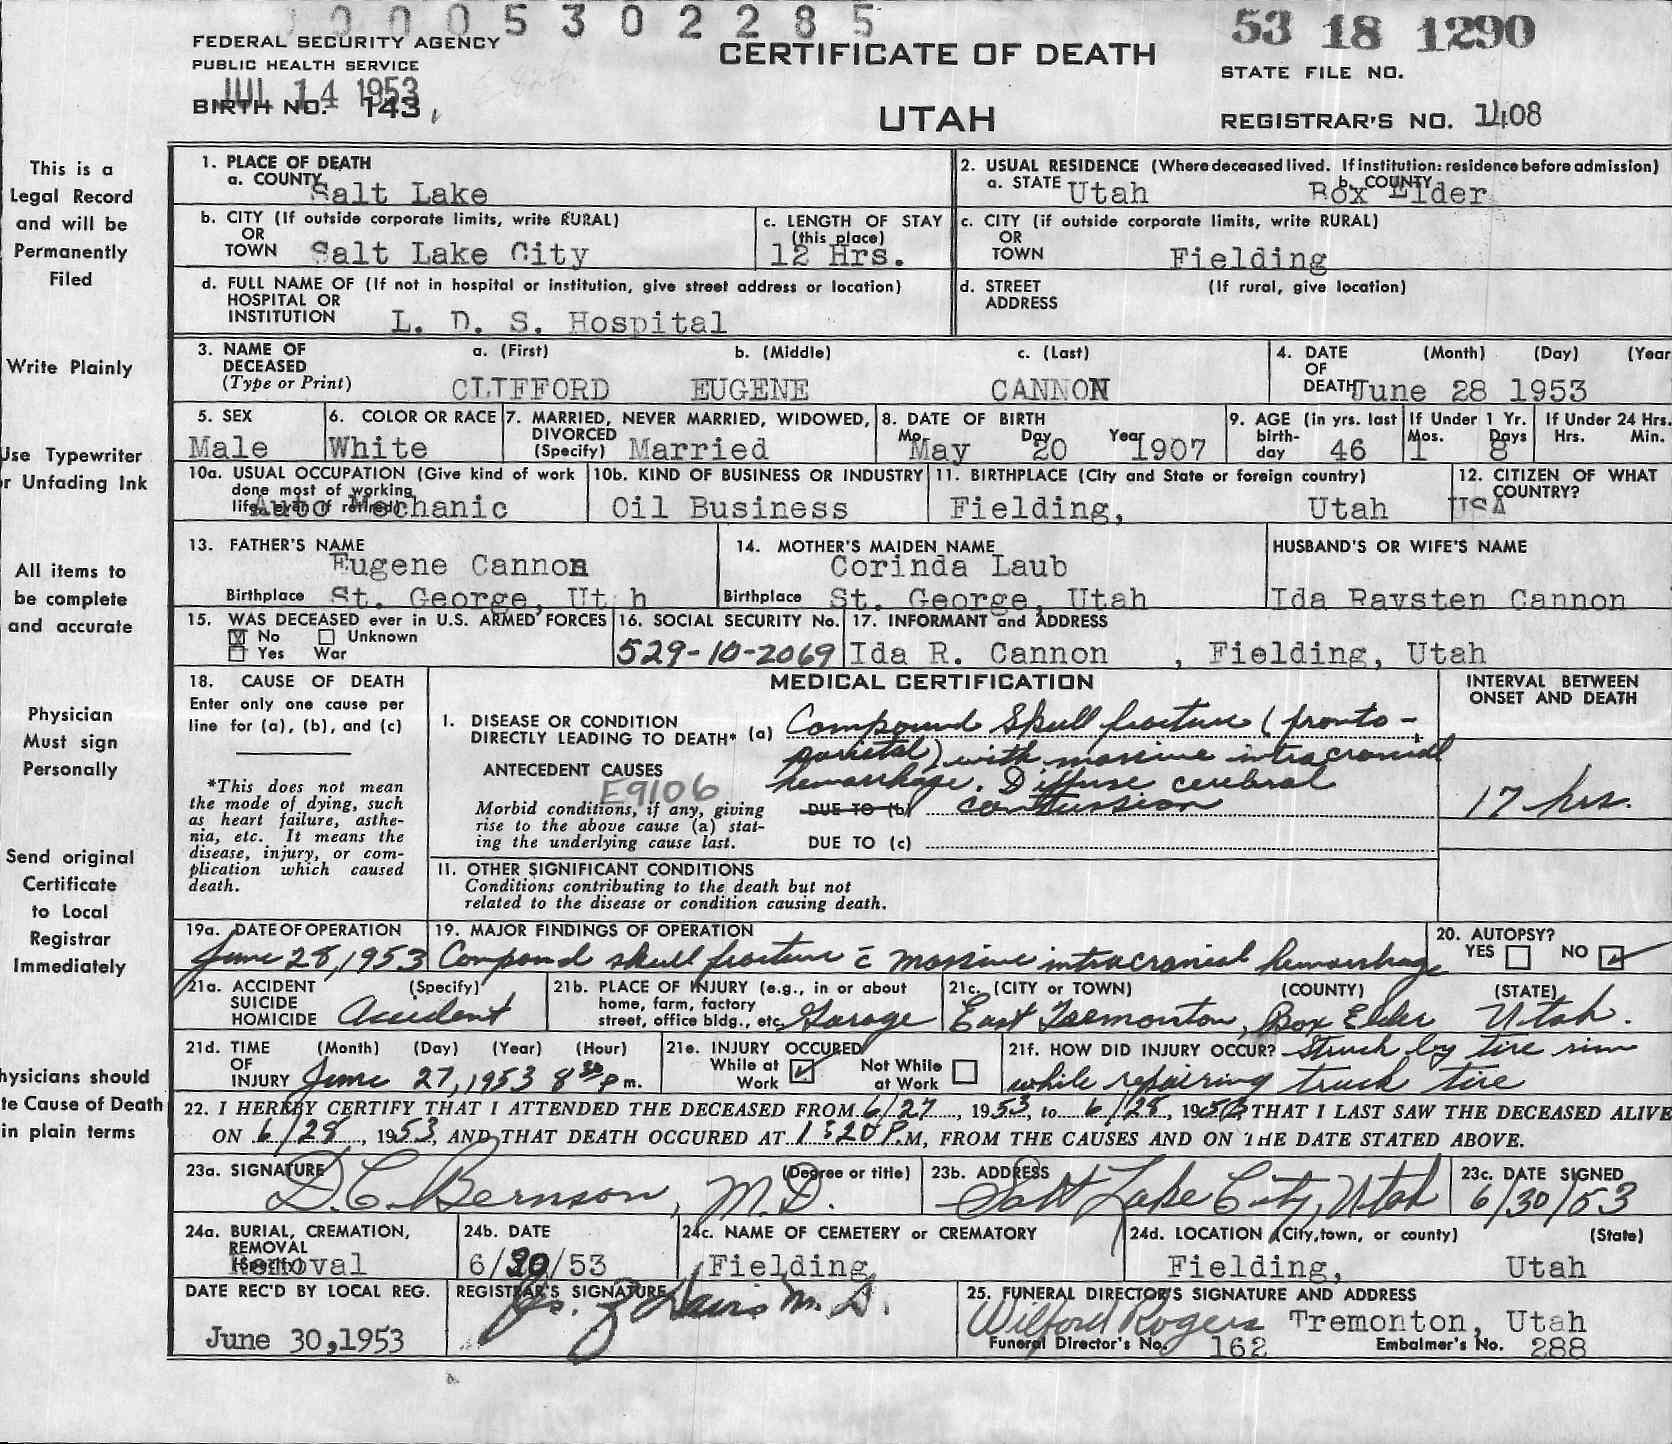 0005302285
53 18 1290
FEDERAL SECURITY AGENCY
PUBLIC HEALTH SERVICE
CERTIFICATE OF DEATH
STATE FILE NO.
JUL 14 1953
BIRTH NO. 143
UTAH
REGISTRAR'S NO. 1408
This is a
Legal Record
and will be
Permanently
Filed
Write Plainly
Use Typewriter
r Unfading Ink
All items to
be complete
and accurate
Physician
Must sign
Personally
Send original
Certificate
to Local
Registrar
Immediately
hysicians should
te Cause of Death
in plain terms
1. PLACE OF DEATH
a. COUNTY Salt Lake
2. USUAL RESIDENCE (Where deceased lived. If institution: residence before admission)
a. STATE Utah b. COUNTY Box Elder
b. CITY (If outside corporate limits, write RURAL)
OR
TOWN Salt Lake City
c. LENGTH OF STAY
(this place)
12 Hrs.
c. CITY (if outside corporate limits, write RURAL)
OR
TOWN Fielding
d. FULL NAME OF (If not in hospital or institution, give street address or location)
HOSPITAL OR
INSTITUTION L. D. S. Hospital
d. STREET (If rural, give location)
ADDRESS
3. NAME OF a. (First) b. (Middle) c. (Last)
DECEASED
(Type or Print) CLIFFORD EUGENE CANNON
4. DATE (Month) (Day) (Year
OF
DEATH June 28 1953
5. SEX
Male
6. COLOR OR RACE
White
7. MARRIED, NEVER MARRIED, WIDOWED,
DIVORCED
(Specify) Married
8. DATE OF BIRTH
Mo. May Day 20 Year 1907
9. AGE (in yrs. last
birth-
day 46
If Under 1 Yr.
Mos. Days
1 8
If Under 24 Hrs.
Hrs. Min.
10a. USUAL OCCUPATION (Give kind of work
done most of working
life, even if retired)
Auto Mechanic
10b. KIND OF BUSINESS OR INDUSTRY
Oil Business
11. BIRTHPLACE (City and State or foreign country)
Fielding, Utah
12. CITIZEN OF WHAT
COUNTRY?
USA
13. FATHER'S NAME
Eugene Cannon
Birthplace St. George, Ut h
14. MOTHER'S MAIDEN NAME
Corinda Laub
Birthplace St. George, Utah
HUSBAND'S OR WIFE'S NAME
Ida Raysten Cannon
15. WAS DECEASED ever in U.S. ARMED FORCES
X No Unknown
Yes War
16. SOCIAL SECURITY No.
529-10-2069
17. INFORMANT and ADDRESS
Ida R. Cannon , Fielding, Utah
18. CAUSE OF DEATH
Enter only one cause per
line for (a), (b), and (c)
*This does not mean
the mode of dying, such
as heart failure, asthe-
nia, etc. It means the
disease, injury, or com-
plication which caused
death.
MEDICAL CERTIFICATION
INTERVAL BETWEEN
ONSET AND DEATH
I. DISEASE OR CONDITION
DIRECTLY LEADING TO DEATH* (a) Compound Skull fracture (fronto-
parietal) with massive intracranial
hemorrhage. Diffuse cerebral
contussion
ANTECEDENT CAUSES
E9106
Morbid conditions, if any, giving
rise to the above cause (a) stat-
ing the underlying cause last.
DUE TO (b)
DUE TO (c)
17 hrs.
11. OTHER SIGNIFICANT CONDITIONS
Conditions contributing to the death but not
related to the disease or condition causing death.
19a. DATE OF OPERATION
June 28, 1953
19. MAJOR FINDINGS OF OPERATION
Compound skull fracture c̄ massive intracranial hemorrhage
20. AUTOPSY?
YES NO ✓
21a. ACCIDENT (Specify)
SUICIDE
HOMICIDE Accident
21b. PLACE OF INJURY (e.g., in or about
home, farm, factory
street, office bldg., etc. Garage
21c. (CITY or TOWN) (COUNTY) (STATE)
East Tremonton, Box Elder Utah.
21d. TIME (Month) (Day) (Year) (Hour)
OF
INJURY June 27, 1953 8 30 P m.
21e. INJURY OCCURED
While at Work ✓ Not While at Work
21f. HOW DID INJURY OCCUR? Struck by tire rim
while repairing truck tire
22. I HEREBY CERTIFY THAT I ATTENDED THE DECEASED FROM 6/27, 1953, to 6/28, 1953 THAT I LAST SAW THE DECEASED ALIVE
ON 6/28, 1953, AND THAT DEATH OCCURED AT 1:20 P.M, FROM THE CAUSES AND ON THE DATE STATED ABOVE.
23a. SIGNATURE (Degree or title)
D.C. Bernson, M.D.
23b. ADDRESS
Salt Lake City, Utah
23c. DATE SIGNED
6/30/53
24a. BURIAL, CREMATION,
REMOVAL
(Specify)
Removal
24b. DATE
6/30/53
24c. NAME OF CEMETERY or CREMATORY
Fielding
24d. LOCATION (City, town, or county) (State)
Fielding, Utah
DATE REC'D BY LOCAL REG.
June 30, 1953
REGISTRAR'S SIGNATURE
M. D.
25. FUNERAL DIRECTOR'S SIGNATURE AND ADDRESS
Wilford Rogers Tremonton, Utah
Funeral Director's No. 162 Embalmer's No. 288